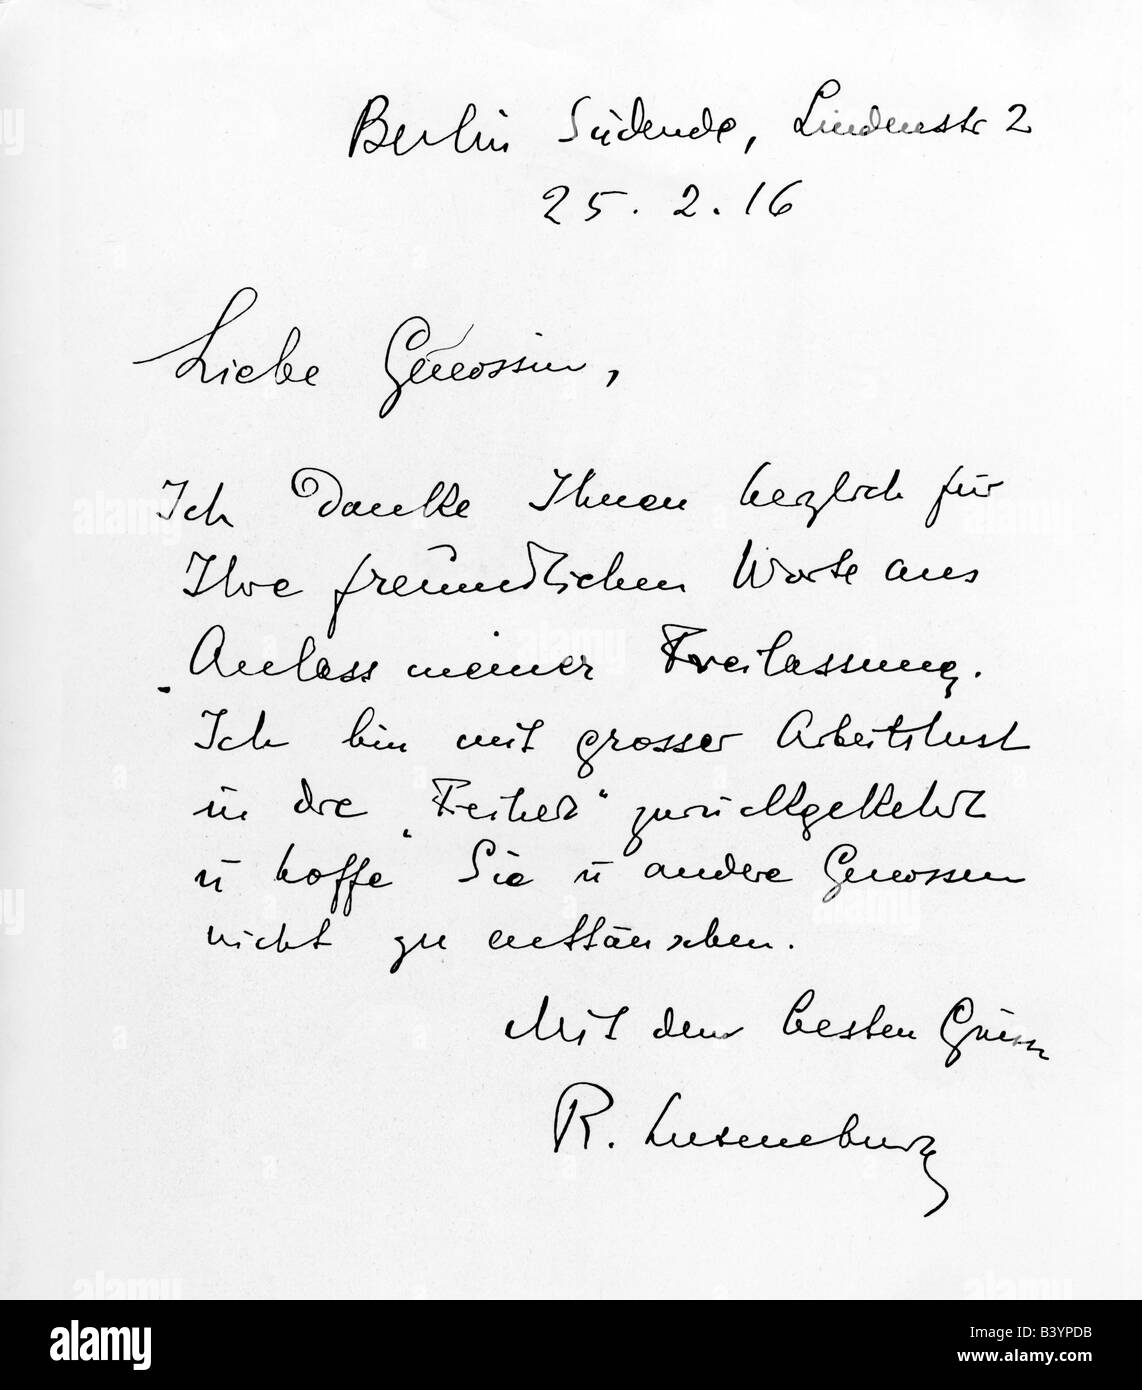 Berlin Südende, Lindenstr 2
25. 2. 16
Liebe Genossin,
Ich danke Ihnen herzlich für
Ihre freundlichen Worte aus
Anlass meiner Freilassung.
Ich bin mit grosser Arbeitslust
in die „Freiheit“ zurückgekehrt
u hoffe Sie u andere Genossen
nicht zu enttäuschen.
Mit den besten Grüssen
R. Luxemburg
alamy
Image ID: B3YPDB
www.alamy.com